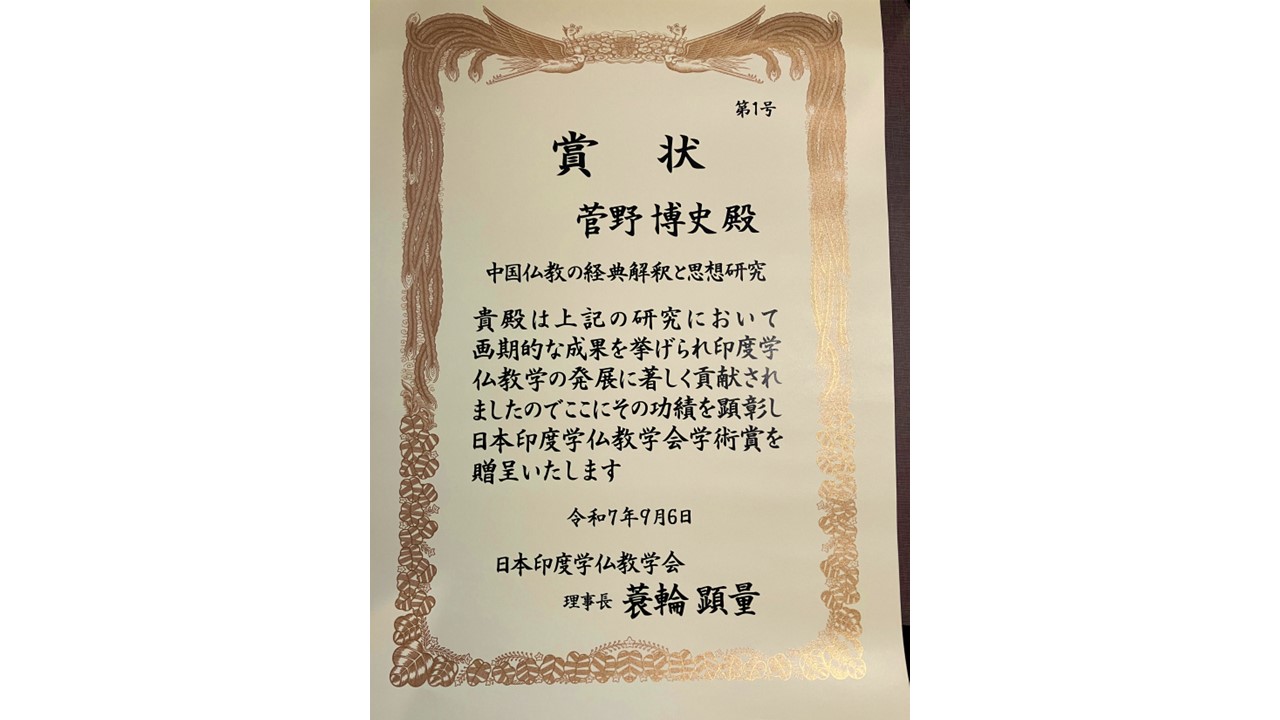 第1号
賞状
菅野博史殿
中国仏教の経典解釈と思想研究
貴殿は上記の研究において
画期的な成果を挙げられ印度学
仏教学の発展に著しく貢献され
ましたのでここにその功績を顕彰し
日本印度学仏教学会学術賞を
贈呈いたします
令和7年9月6日
日本印度学仏教学会
理事長 蓑輪顕量